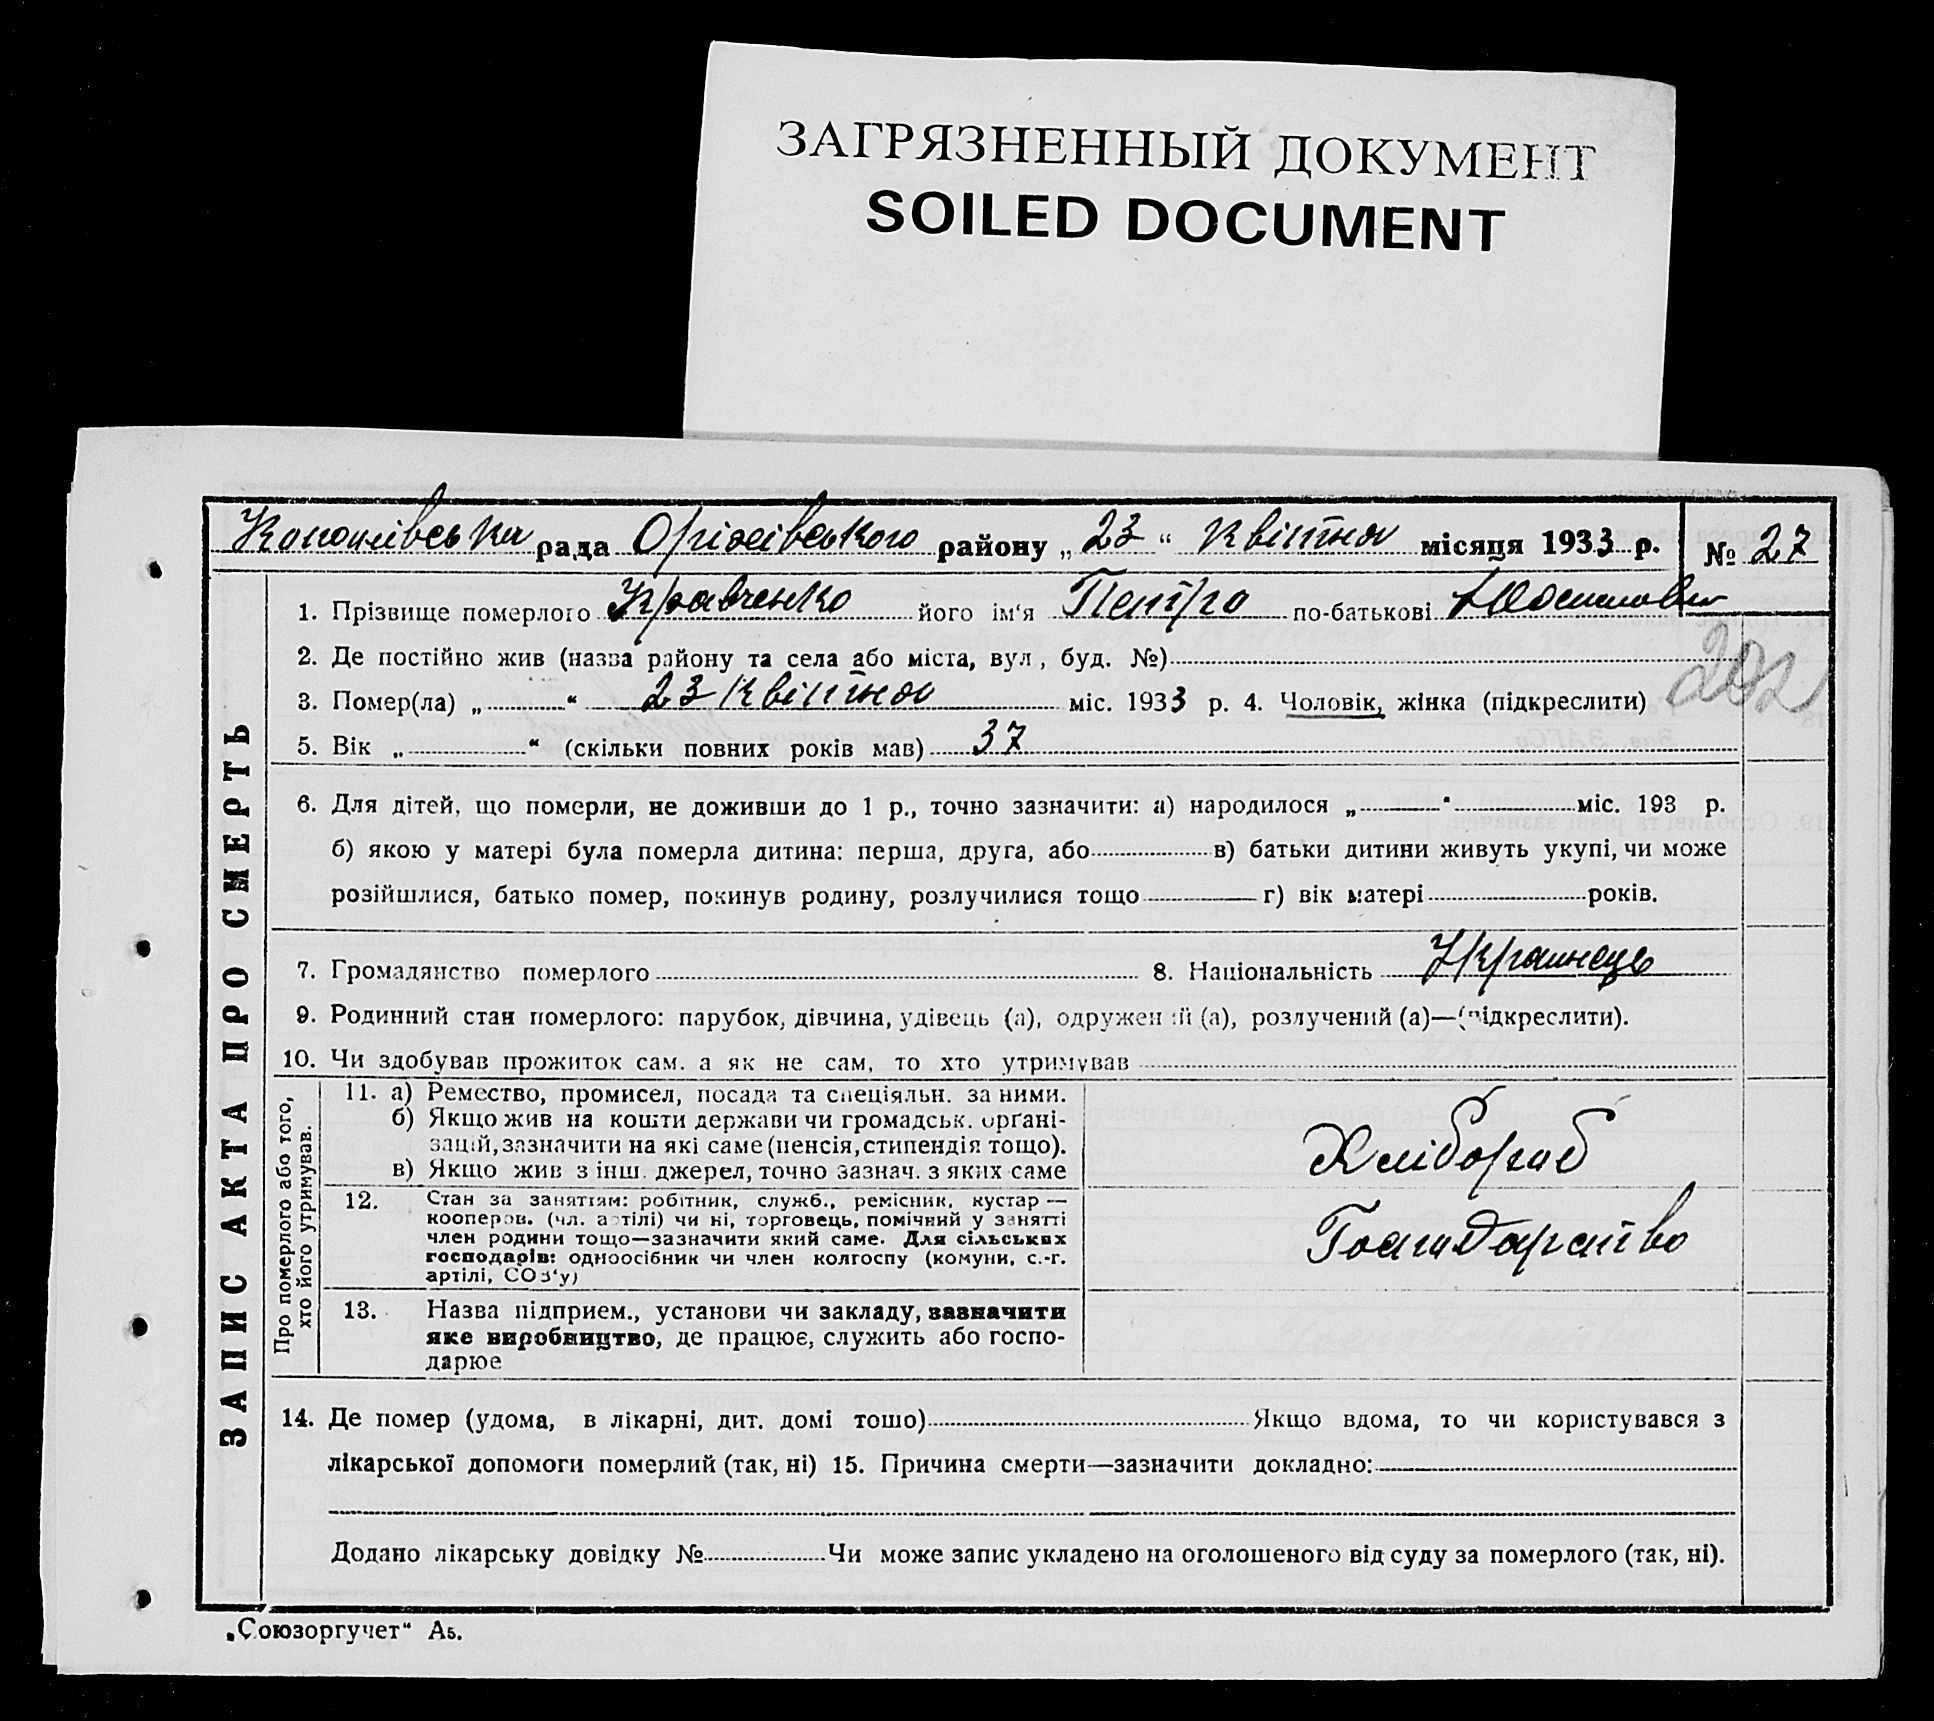 ЗАГРЯЗНЕННЫЙ ДОКУМЕНТ
SOILED DOCUMENT
рада Оріхівського району „ 23 “ Квітня місяця 1933 р. № 27
1. Прізвище померлого Кравченко його ім‘я Петро по-батькові
202
2. Де постійно жив (назва району та села або міста, вул, буд. №)
3. Помер(ла) „ “ 23 Квітня міс. 1933 р. 4. Чоловік, жінка (підкреслити)
5. Вік „ “ (скільки повних років мав) 37
6. Для дітей, що померли, не доживши до 1 р., точно зазначити: а) народилося „ “ міс. 193 р.
б) якою у матері була померла дитина: перша, друга, або в) батьки дитини живуть укупі, чи може
розійшлися, батько помер, покинув родину, розлучилися тощо г) вік матері років.
7. Громадянство померлого 8. Національність Украінець
9. Родинний стан померлого: парубок, дівчина, удівець (а), одружений (а), розлучений (а)—(підкреслити).
10. Чи здобував прожиток сам. а як не сам, то хто утримував
ЗАПИС АКТА ПРО СМЕРТЬ
Про померлого або того,
хто його утримував.
11. а) Ремество, промисел, посада та спеціяльн. за ними.
б) Якщо жив на кошти держави чи громадськ. орґані-
зацій, зазначити на які саме (пенсія, стипендія тощо).
в) Якщо жив з інш. джерел, точно зазнач. з яких саме
Хлібороб
12. Стан за заняттям: робітник, служб., ремісник, кустар —
кооперов. (чл. артілі) чи ні, торговець, помічний у занятті
член родини тощо—зазначити який саме. Для сільських
господарів: одноосібник чи член колгоспу (комуни, с.-г.
артілі, СОЗ‘у)
Господарство
13. Назва підприєм., установи чи закладу, зазначити
яке виробництво, де працює, служить або госпо-
дарює
14. Де помер (удома, в лікарні, дит. домі тощо) Якщо вдома, то чи користувався з
лікарської допомоги померлий (так, ні) 15. Причина смерти—зазначити докладно:
Додано лікарську довідку № Чи може запис укладено на оголошеного від суду за померлого (так, ні).
„Союзоргучет“ А5.